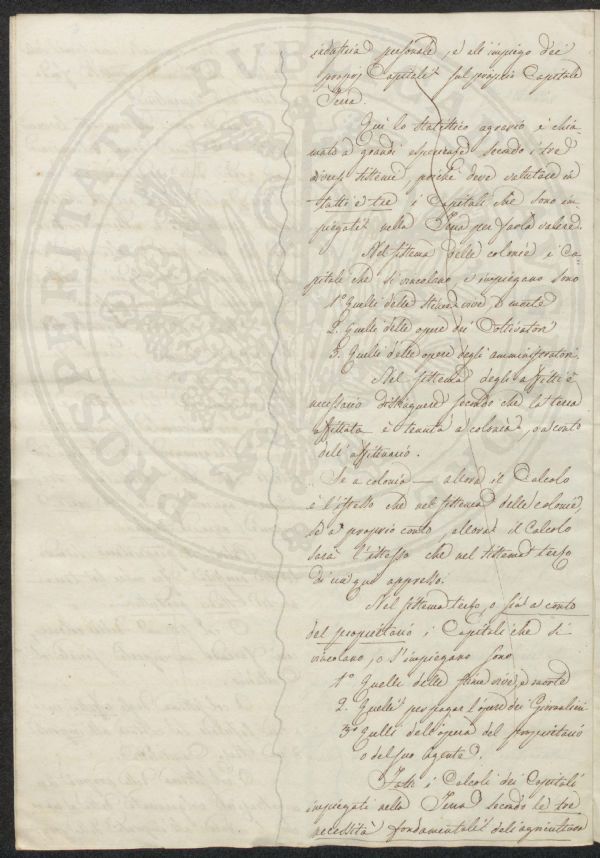 industria personale, e all'impiego dei
proprj Capitali sul proprio Capitale
Terra.
Qui lo statistico agrario è chia-
mato a grandi esperienze secondo i tre
diversi sistemi, poiché deve valutare in
tutti e tre i Capitali che sono im-
piegati nella Terra per farla valere.
Nel sistema delle colonie i Ca-
pitali che si vincolano, e impiegano sono
1° Quelli delle vive e morte
2. Quelli delle opere dei Coltivatori
3. Quelli delle opere degli amministratori.
Nel sistema degli affitti è
necessario distinguere secondo che la terra
affittata è tenuta a colonia, o a conto
dell'affittuario.
Se a colonia — allora il Calcolo
è l'istesso che nel sistema delle colonie,
se a proprio conto, allora il Calcolo
sarà l'istesso che nel sistema terzo
di cui qui appresso.
Nel sistema terzo, o sia a conto
del proprietario i Capitali che si
vincolano, o s'impiegano sono
1° Quelli delle vive, e morte
2. Quelli per pagar l'opere dei Giornalieri
3° Quelli dell'opera del proprietario
o del suo agente.
Tutti i Calcoli dei Capitali
impiegati nella Terra secondo le tre
necessità fondamentali dell'agricoltura
PROSPERITATI PUBLICAE